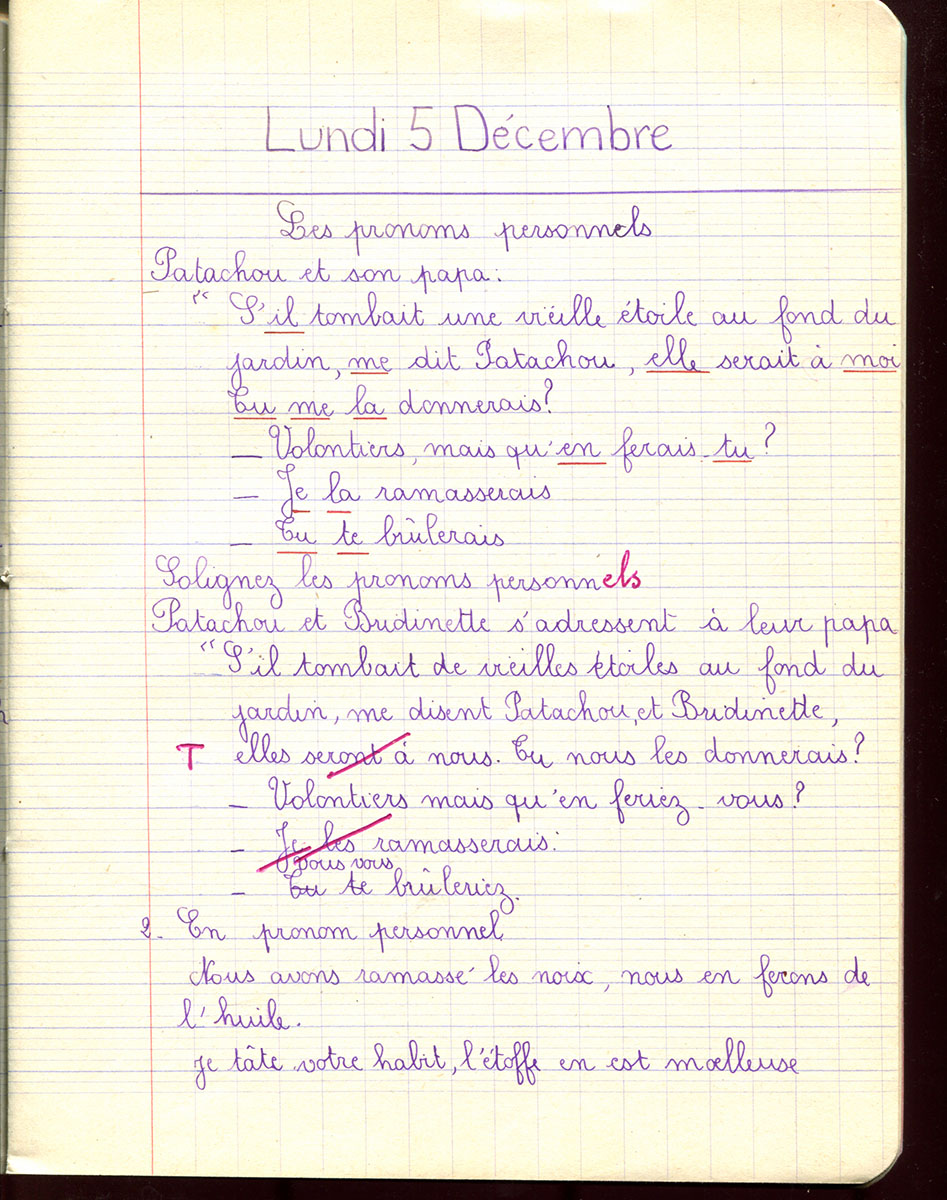 Lundi 5 Décembre
Les pronoms personnels
Patachou et son papa:
"S'il tombait une vieille étoile au fond du
jardin, me dit Patachou, elle serait à moi
Tu me la donnerais?
— Volontiers, mais qu'en ferais-tu?
— Je la ramasserais
— Tu te brûlerais
Solignez les pronoms personnels
Patachou et Bridinette s'adressent à leur papa
"S'il tombait de vieilles étoiles au fond du
jardin, me disent Patachou, et Bridinette,
T elles seront à nous. Tu nous les donnerais?
— Volontiers mais qu'en feriez-vous?
— Je les ramasserais.
vous vous
— Tu te brûleriez.
2. En pronom personnel
Nous avons ramassé les noix, nous en ferons de
l'huile.
je tâte votre habit, l'étoffe en est mœlleuse